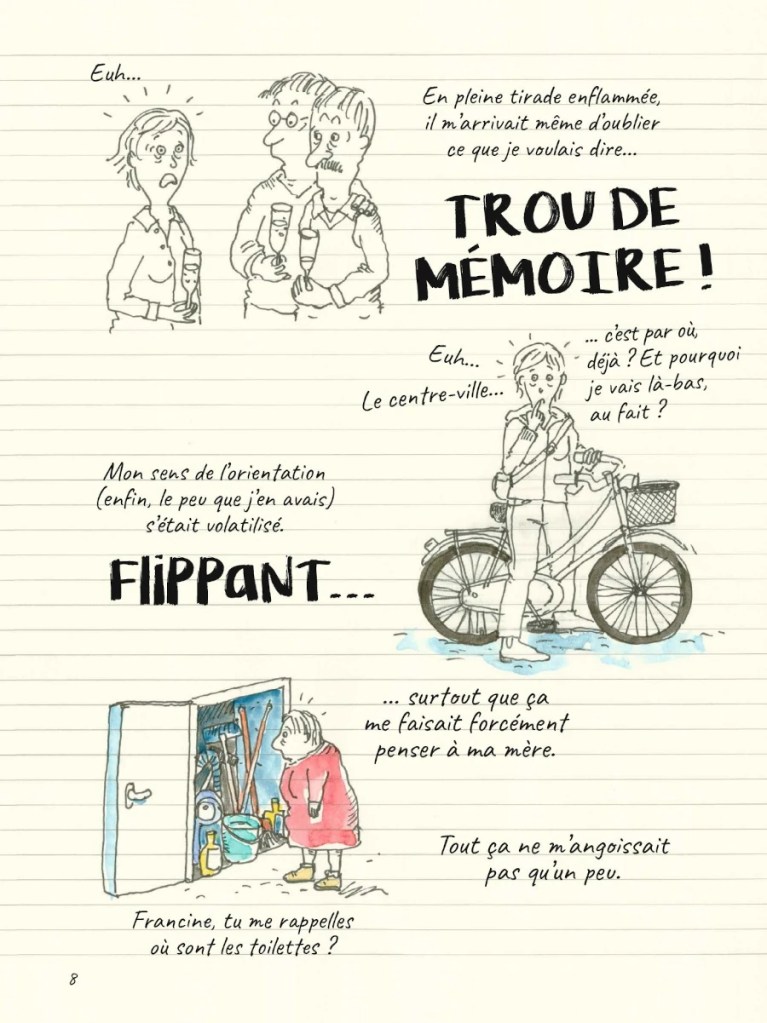 Euh...
En pleine tirade enflammée,
il m'arrivait même d'oublier
ce que je voulais dire...
TROU DE
MÉMOIRE !
Euh...
Le centre-ville...
... c'est par où,
déjà ? Et pourquoi
je vais là-bas,
au fait ?
Mon sens de l'orientation
(enfin, le peu que j'en avais)
s'était volatilisé.
FLiPPaNT...
... surtout que ça
me faisait forcément
penser à ma mère.
Tout ça ne m'angoissait
pas qu'un peu.
Francine, tu me rappelles
où sont les toilettes ?
8